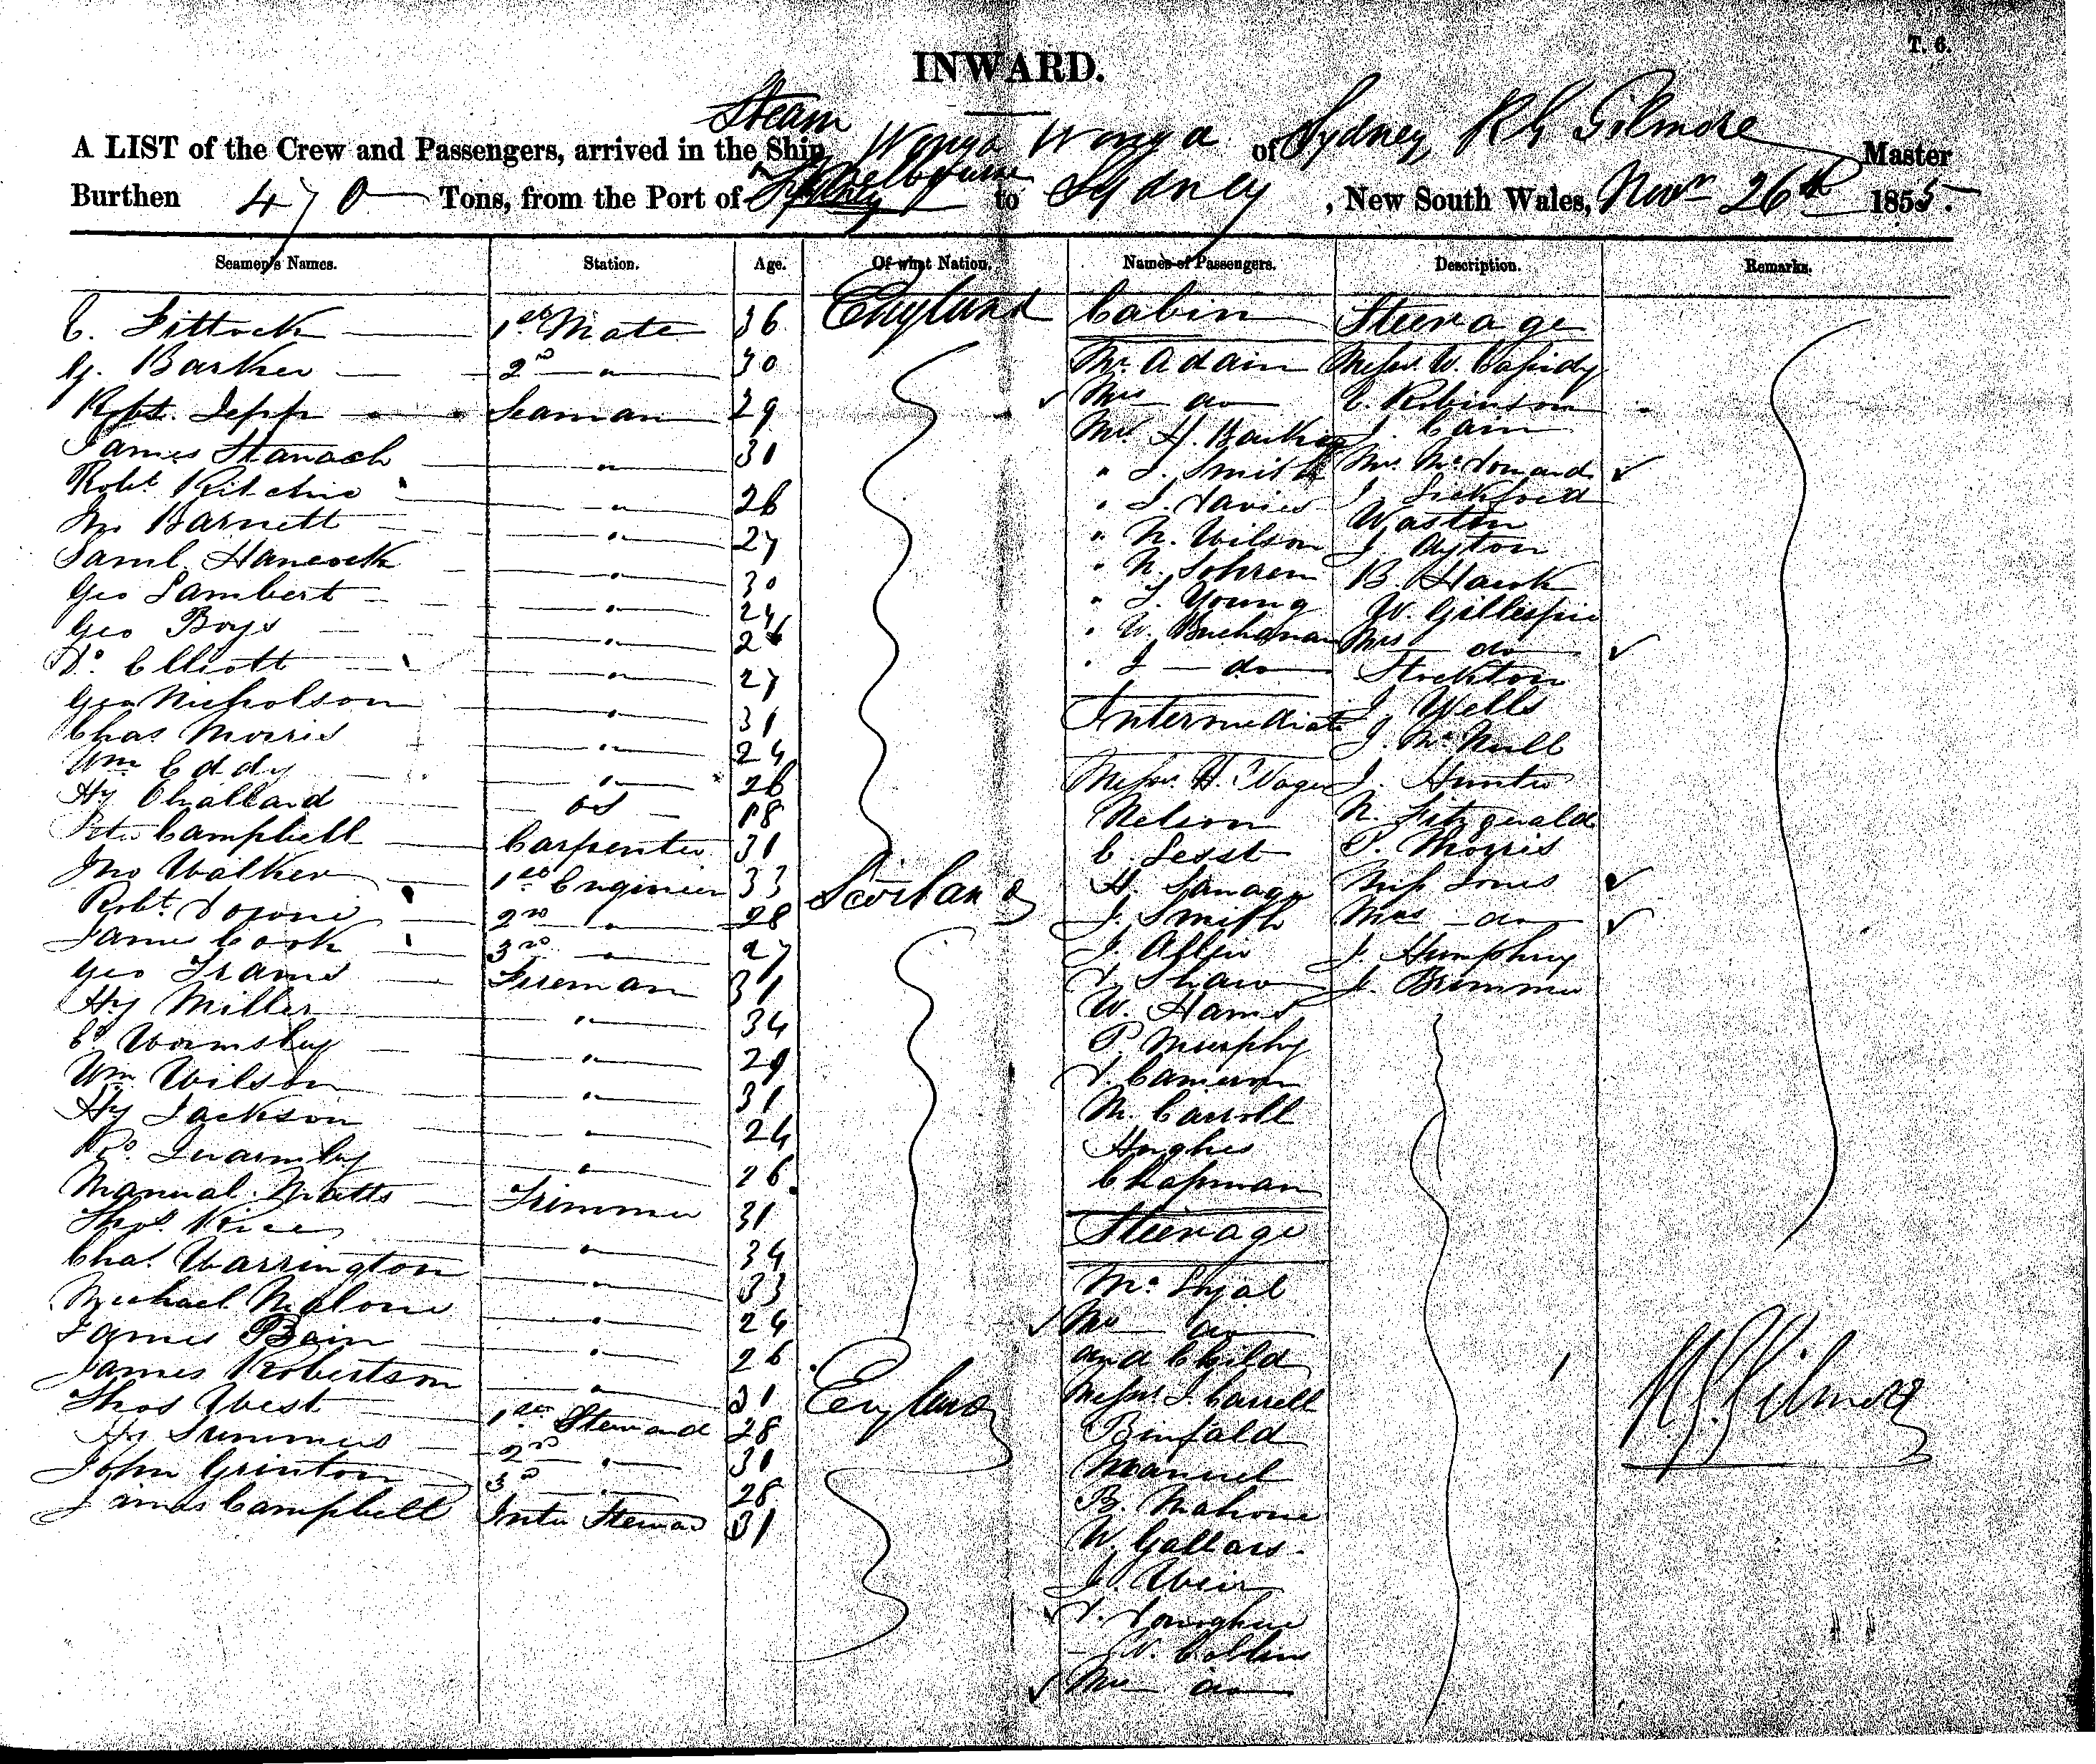 T. 6.
INWARD.
Steam
A LIST of the Crew and Passengers, arrived in the Ship Wonga Wonga of Sydney R G Gilmore Master
Melbourne
Burthen 470 Tons, from the Port of Sydney to Sydney, New South Wales, Novr 26th 1855.
Seamen's Names. Station. Age. Of what Nation. Names of Passengers. Description. Remarks.
C. Fittock 1st Mate 36 England
G. Barker 2nd " 30
Robt. Jepp Seaman 29
James Stanach " 31
Robt Ritchie " 26
Barnett " 27
Saml. Hancock " 30
Geo Lambert " 24
Geo Boys "
Do Elliott " 27
Geo Nicholson " 31
Chas Morris " 24
Wm Eddy " 26
Hy Challand OS 18
Peter Campbell Carpenter 31
Jno Walker 1st Engineer 33 Scotland
Robt. Downie 2nd " 28
James Cook 3rd " 27
Geo Fireman 31
Hy Miller " 34
C. Wormsley " 29
Wm Wilson " 31
Hy Jackson " 24
Quarmby " 26
Manual Matts Trimmer 31
Thos Rice " 34
Chas. Warrington " 33
Michael Malone " 24
James Bain " 26
James Robertson " 31
Thos West 1st Steward 28 England
Summers 2nd " 31
John Grinton 3rd " 28
James Campbell Inter Steward 31
Cabin
Mr Adain
Mrs do
Mr H. Barker
" J. Smith
" J. Davies
" N. Wilson
" N. Sohren
" J. Young
" W. Buchanan
" J do
Intermediate
Messrs H.
Nelson
C. Sesst
H. Sanago
J. Smith
J. Allen
D Shaw
W. Hams
P. Murphy
D. Cameron
M. Carroll
Hughes
Chapman
Steerage
Mr Lyal
Mrs do
and Child
Messrs J. Carrell
Binfald
Manuel
B. Mahone
W. Gallais
J. Weir
D. Donoghue
W. Collins
Mrs do
Steerage
Messrs W. Cassidy
E. Robinson
J. Cain
Mrs McDonald
J. Sickford
Waston
J. Ayton
B. Hawk
W. Gillespie
Mrs do
Stockton
J Wells
J. McNull
J. Hunter
N. Fitzgerald
P. Morris
Miss Jones
Mrs do
J. Humphrey
J. Brimmer
R G Gilmore